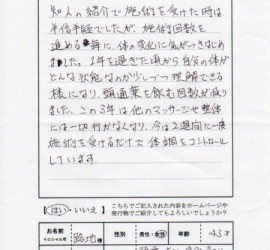 知人の紹介で施術を受けた時は
半信半疑でしたが、施術回数を
進める毎に、体の変化に気がつきはじめ
ました。1年を過ぎた頃から自分の体が
どんな状態なのか少しづつ理解できる
様になり、頭痛薬を飲む回数が減
りました。この3年は他のマッサージや整体
には一切行かなくなり、今は2週間に一度
施術を受けるだけで体調をコントロール
しています
【はい・いいえ】
こちらでご記入された内容をホームページや
発行物でご紹介してもよろしいでしょうか?
お名前
イニシャル可
様
性別
男性・女性
年齢
43才